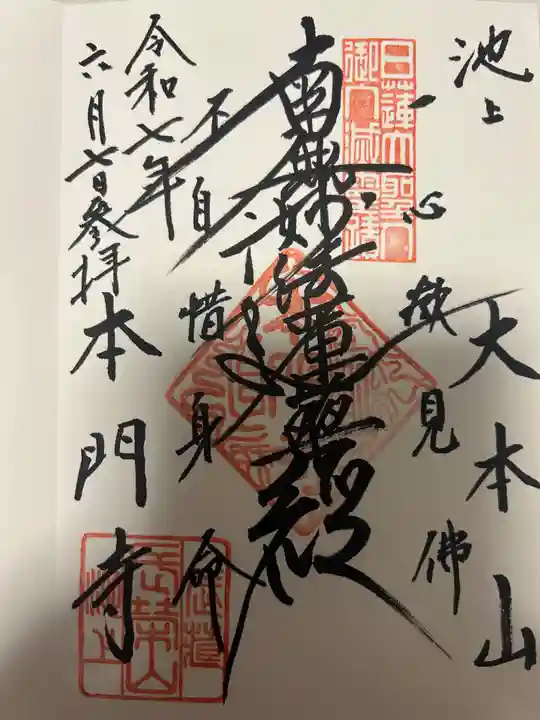 池上
大本山
日蓮大聖人
御入滅霊場
一心欲見佛
南無妙法蓮華経
不自惜身命
令和七年
六月七日参拝
本門寺